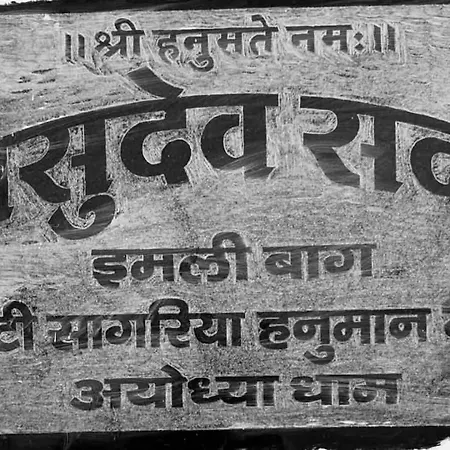 ॥श्री हनुमते नमः॥
सुदेव सद
इमली बाग
टी सागरिया हनुमान
अयोध्या धाम